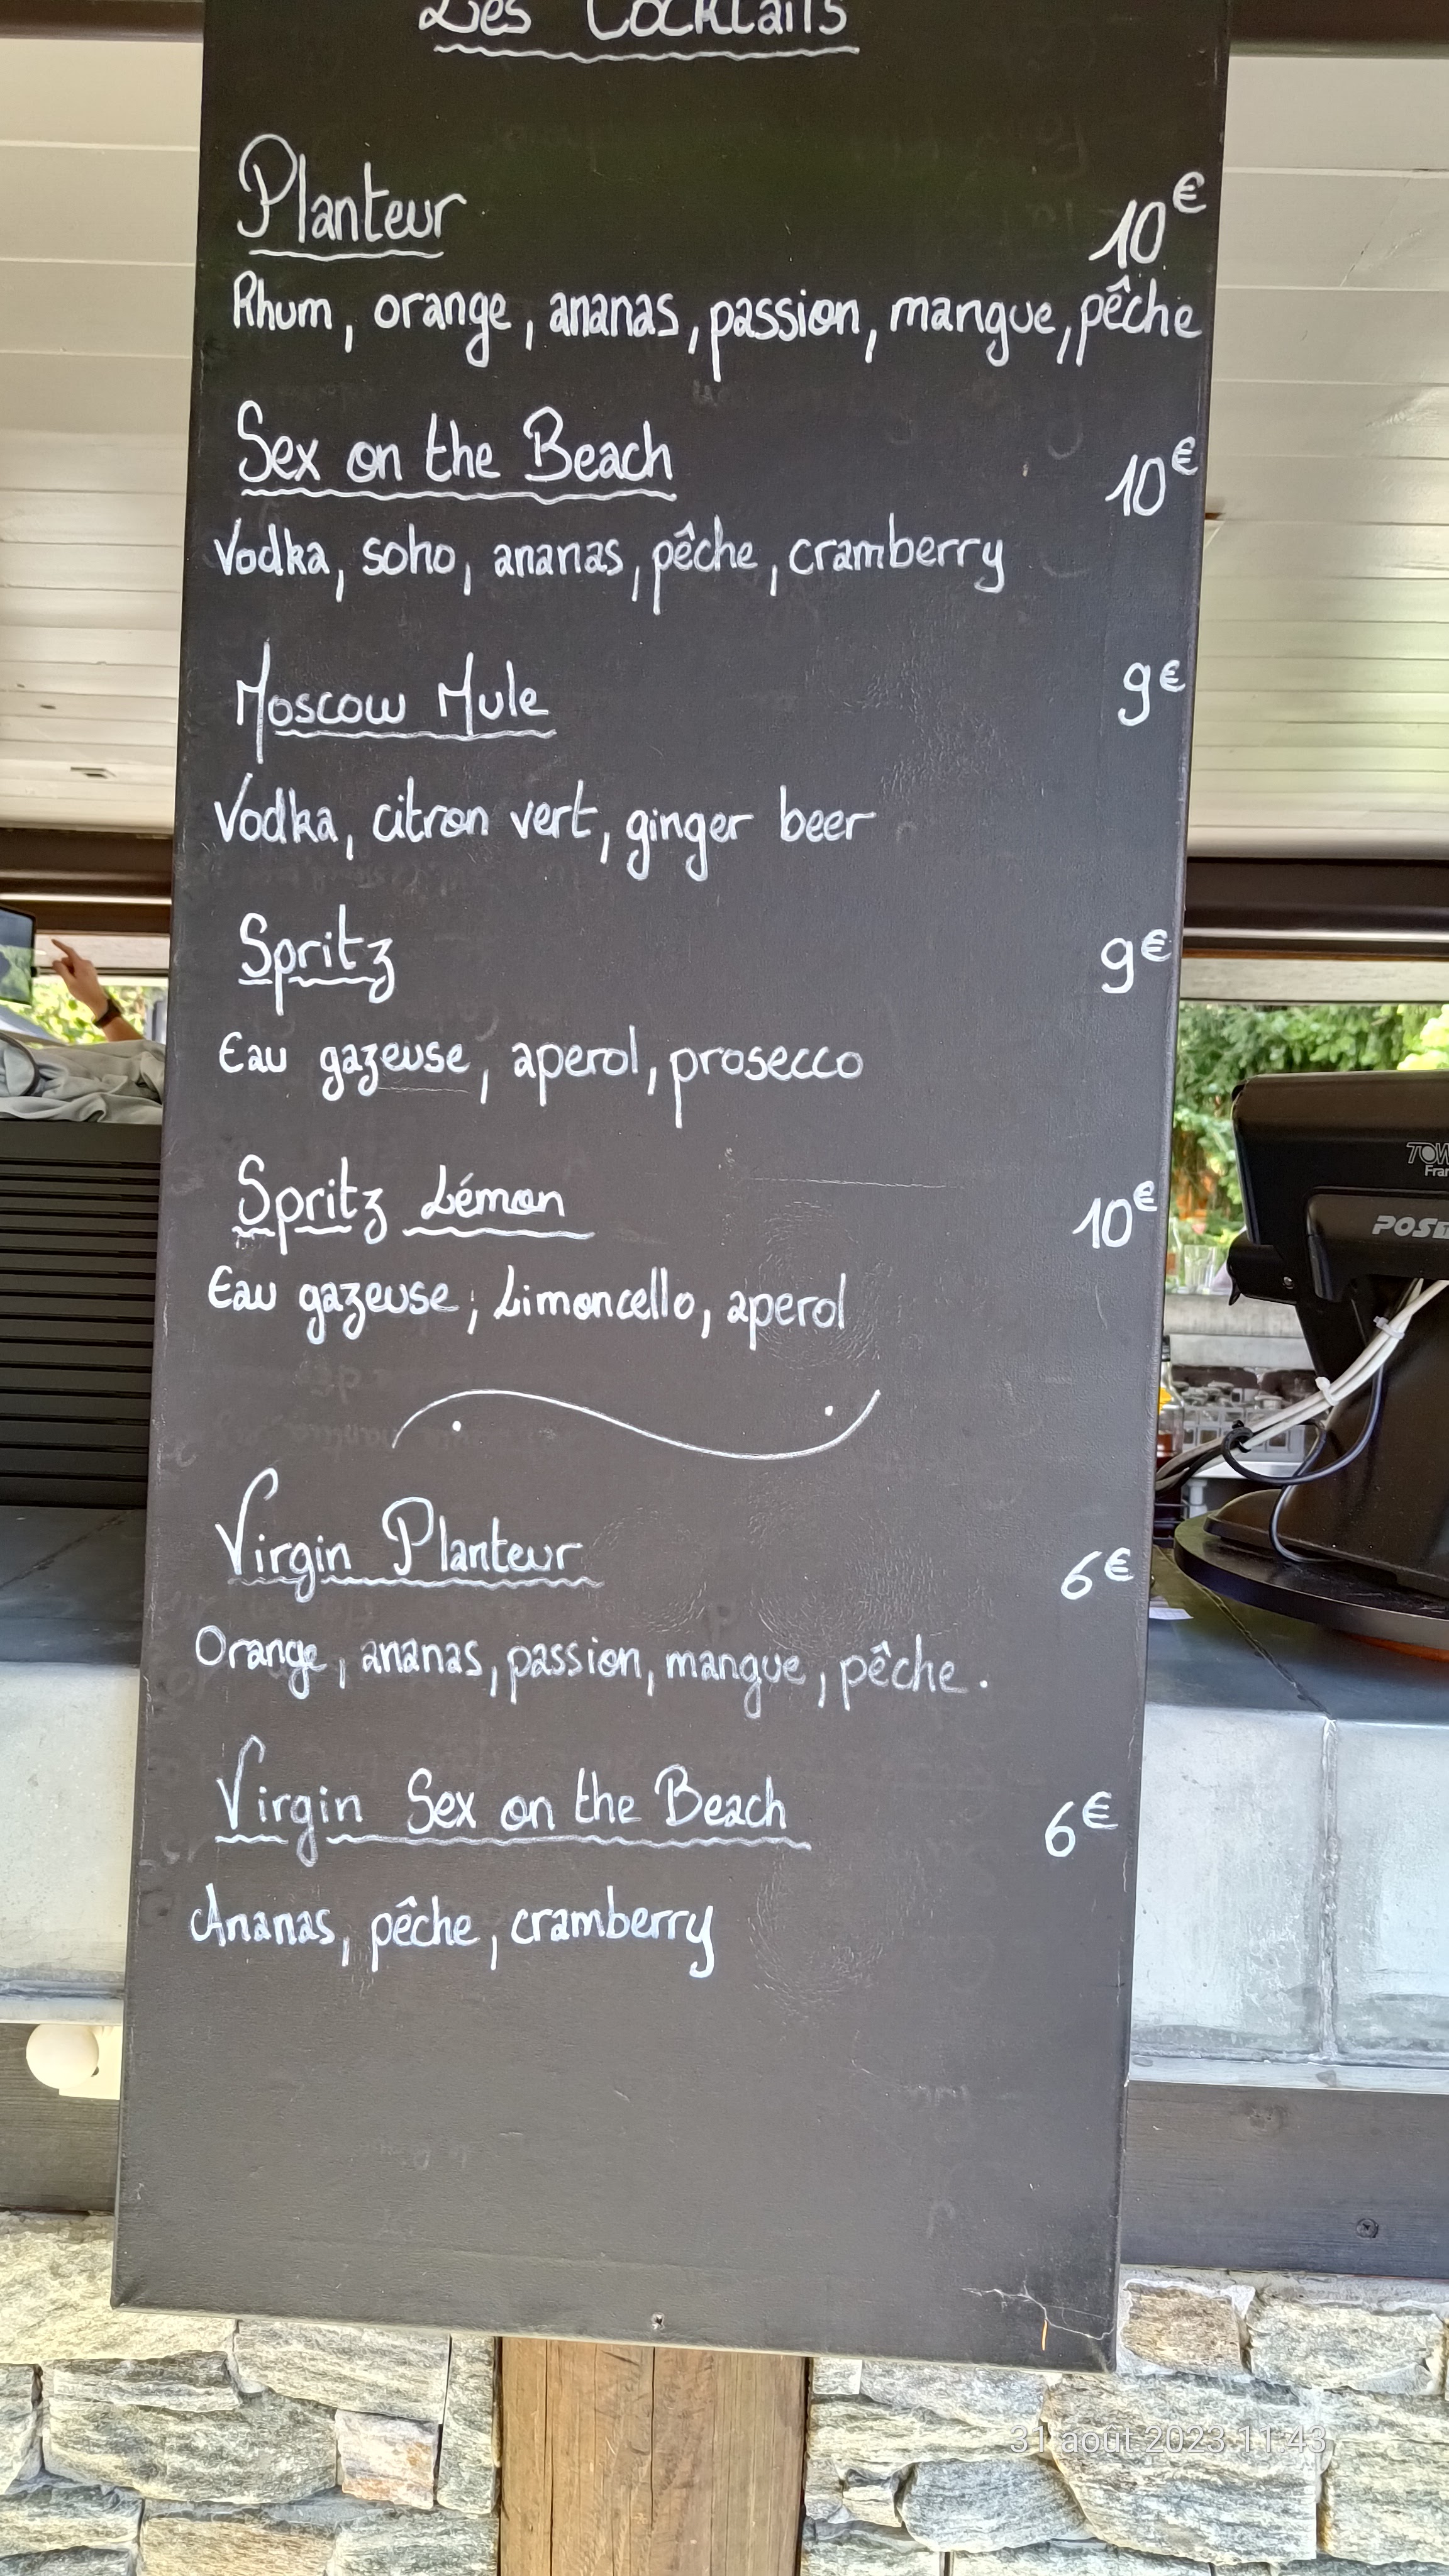 Les Cocktails
Planteur 10€
Rhum, orange, ananas, passion, mangue, pêche
Sex on the Beach 10€
Vodka, soho, ananas, pêche, cramberry
Moscow Mule 9€
Vodka, citron vert, ginger beer
Spritz 9€
Eau gazeuse, aperol, prosecco
Spritz Lémon 10€
Eau gazeuse, Limoncello, aperol
Virgin Planteur 6€
Orange, ananas, passion, mangue, pêche.
Virgin Sex on the Beach 6€
Ananas, pêche, cramberry
31 août 2023 11:43